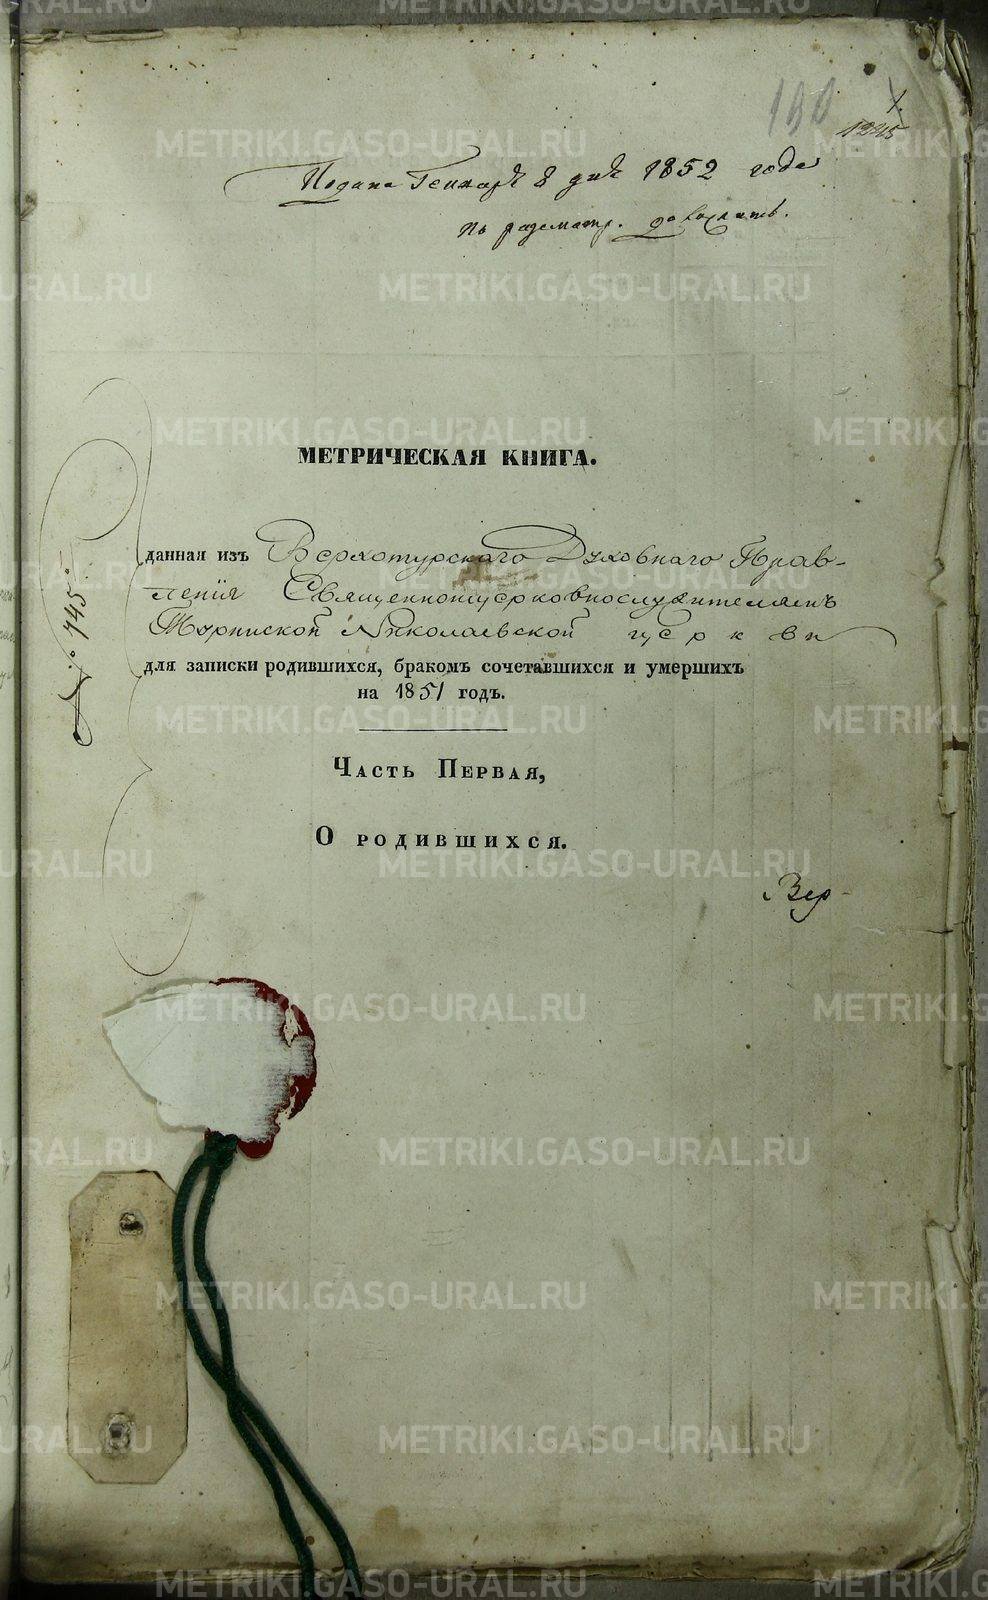 190
1.
1245
Подана Генваря 8 дня 1852 года
По разсмотр. доложить.
МЕТРИЧЕСКАЯ КНИГА.
данная изъ Верхотурскаго Духовнаго Прав-
ленія Священноцерковнослужителямъ
Николаевской церкви
для записки родившихся, бракомъ сочетавшихся и умершихъ
на 1851 годъ.
№ 745.
Часть Первая,
О родившихся.
Вер-
METRIKI.GASO-URAL.RU